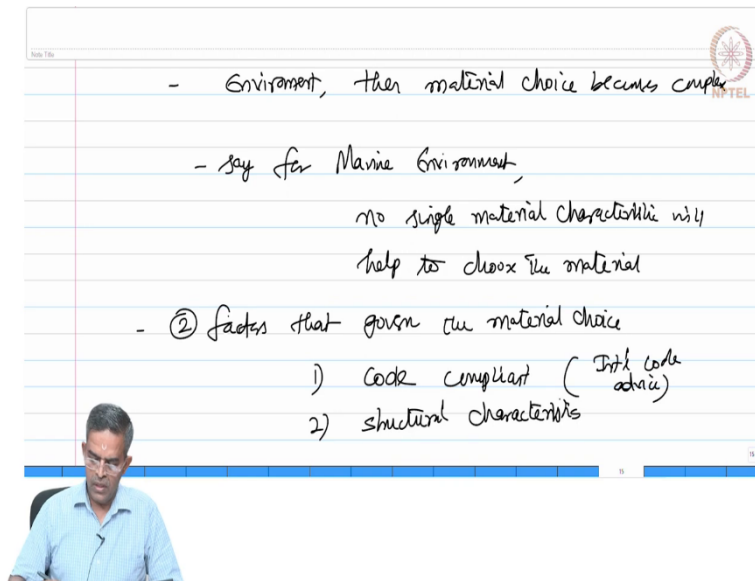 Note Title
NPTEL
- Environment, then material choice becomes complex
- say for Marine Environment,
no single material characteristic will
help to choose the material
- ② factors that govern the material choice
1) code compliant ( Int'l code
advice)
2) structural characteristics
15